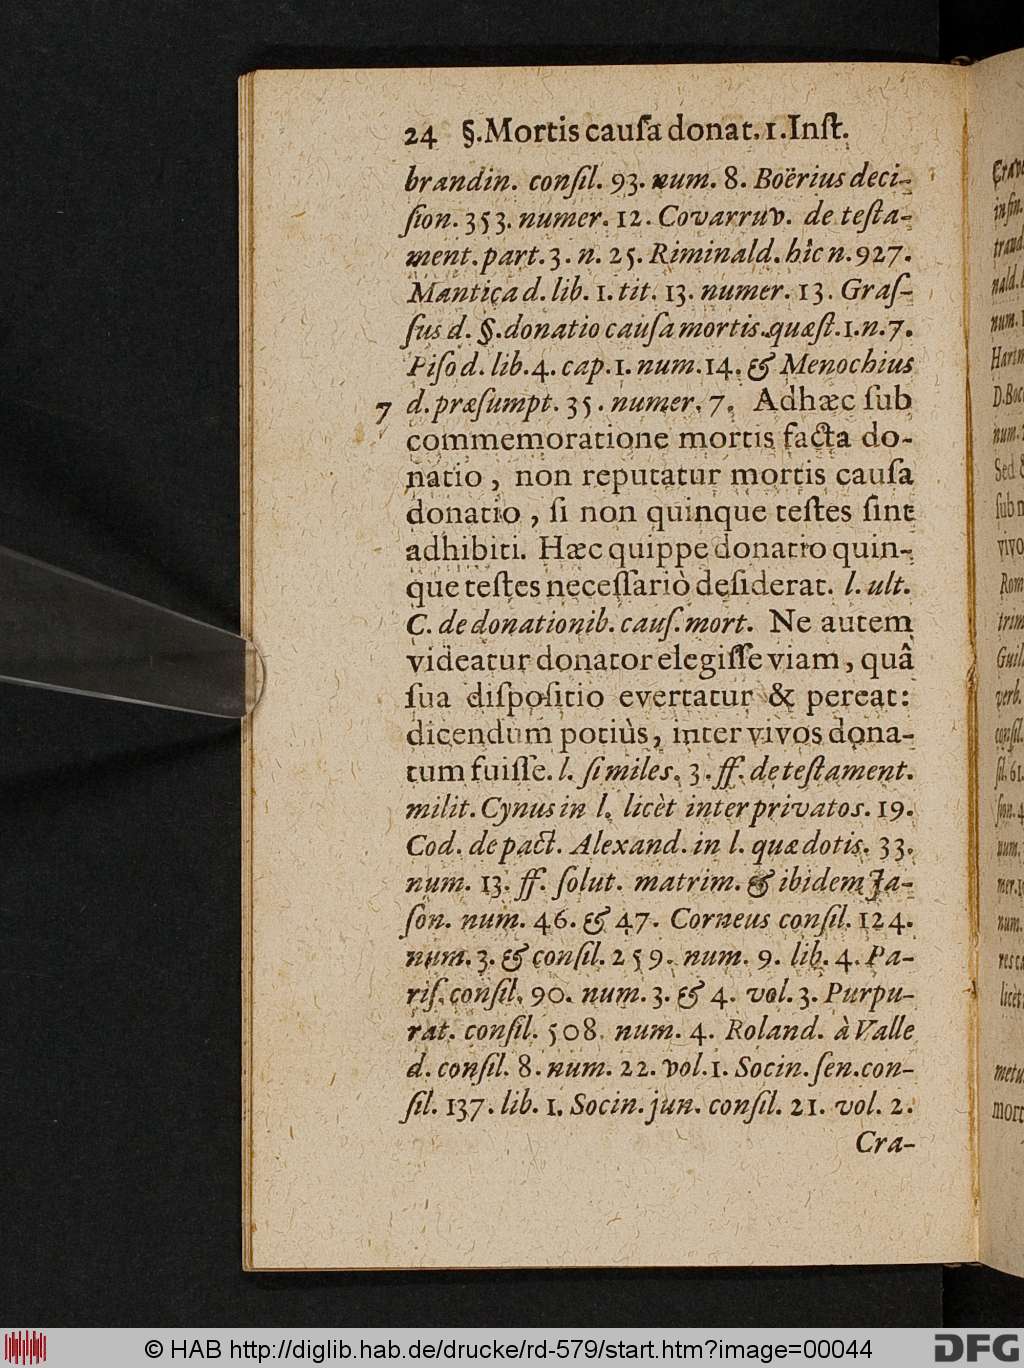 24 §.Mortis cauſa donat. 1. Inſt.
brandin. conſil. 93. num. 8. Boërius deci-
ſion. 353. numer. 12. Covarruv. de teſta-
ment. part. 3. n. 25. Riminald. hîc n. 927.
Mantica d. lib. 1. tit. 13. numer. 13. Graſ-
ſus d. §. donatio cauſa mortis. quæſt. 1. n. 7.
Piſo d. lib. 4. cap. 1. num. 14. & Menochius
7 d. præſumpt. 35. numer. 7. Adhæc ſub
commemoratione mortis facta do-
natio, non reputatur mortis cauſa
donatio, ſi non quinque teſtes ſint
adhibiti. Hæc quippe donatio quin-
que teſtes neceſſariò deſiderat. l. ult.
C. de donationib. cauſ. mort. Ne autem
videatur donator elegiſſe viam, quâ
ſua diſpoſitio evertatur & pereat:
dicendum potiùs, inter vivos dona-
tum fuiſſe. l. ſimiles. 3. ff. de teſtament.
milit. Cynus in l. licèt inter privatos. 19.
Cod. de pact. Alexand. in l. quæ dotis. 33.
num. 13. ff. ſolut. matrim. & ibidem Ja-
ſon. num. 46. & 47. Corneus conſil. 124.
num. 3. & conſil. 259. num. 9. lib. 4. Pa-
riſ. conſil. 90. num. 3. & 4. vol. 3. Purpu-
rat. conſil. 508. num. 4. Roland. à Valle
d. conſil. 8. num. 22. vol. 1. Socin. ſen. con-
ſil. 137. lib. 1. Socin. jun. conſil. 21. vol. 2.
Cra-
© HAB http://diglib.hab.de/drucke/rd-579/start.htm?image=00044
DFG